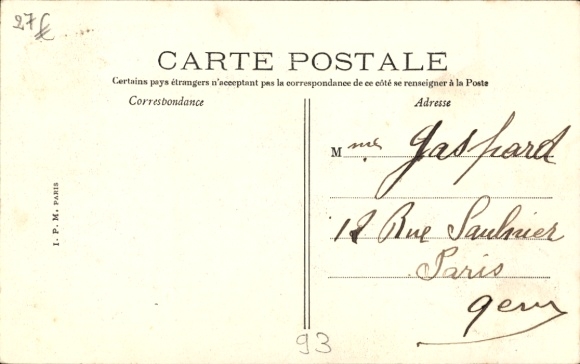 27€
CARTE POSTALE
Certains pays étrangers n'acceptant pas la correspondance de ce côté se renseigner à la Poste
Correspondance
Adresse
Mme Gaspard
12 Rue Saulnier
Paris
9em
I. P. M. PARIS
93